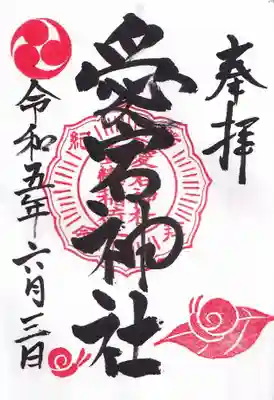 奉拝
愛宕神社
令和五年六月三日